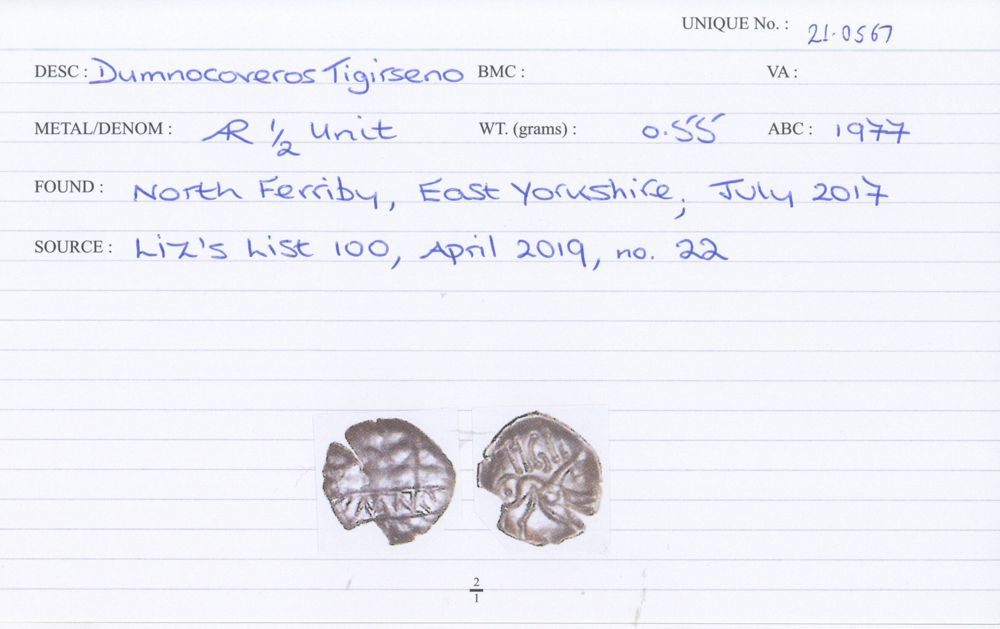 UNIQUE No. : 21.0567
DESC : Dumnocoveros Tigirseno BMC : VA :
METAL/DENOM : AR 1/2 Unit WT. (grams) : 0.55 ABC : 1977
FOUND : North Ferriby, East Yorkshire, July 2017
SOURCE : Liz's List 100, April 2019, no. 22
TIGII
2
1